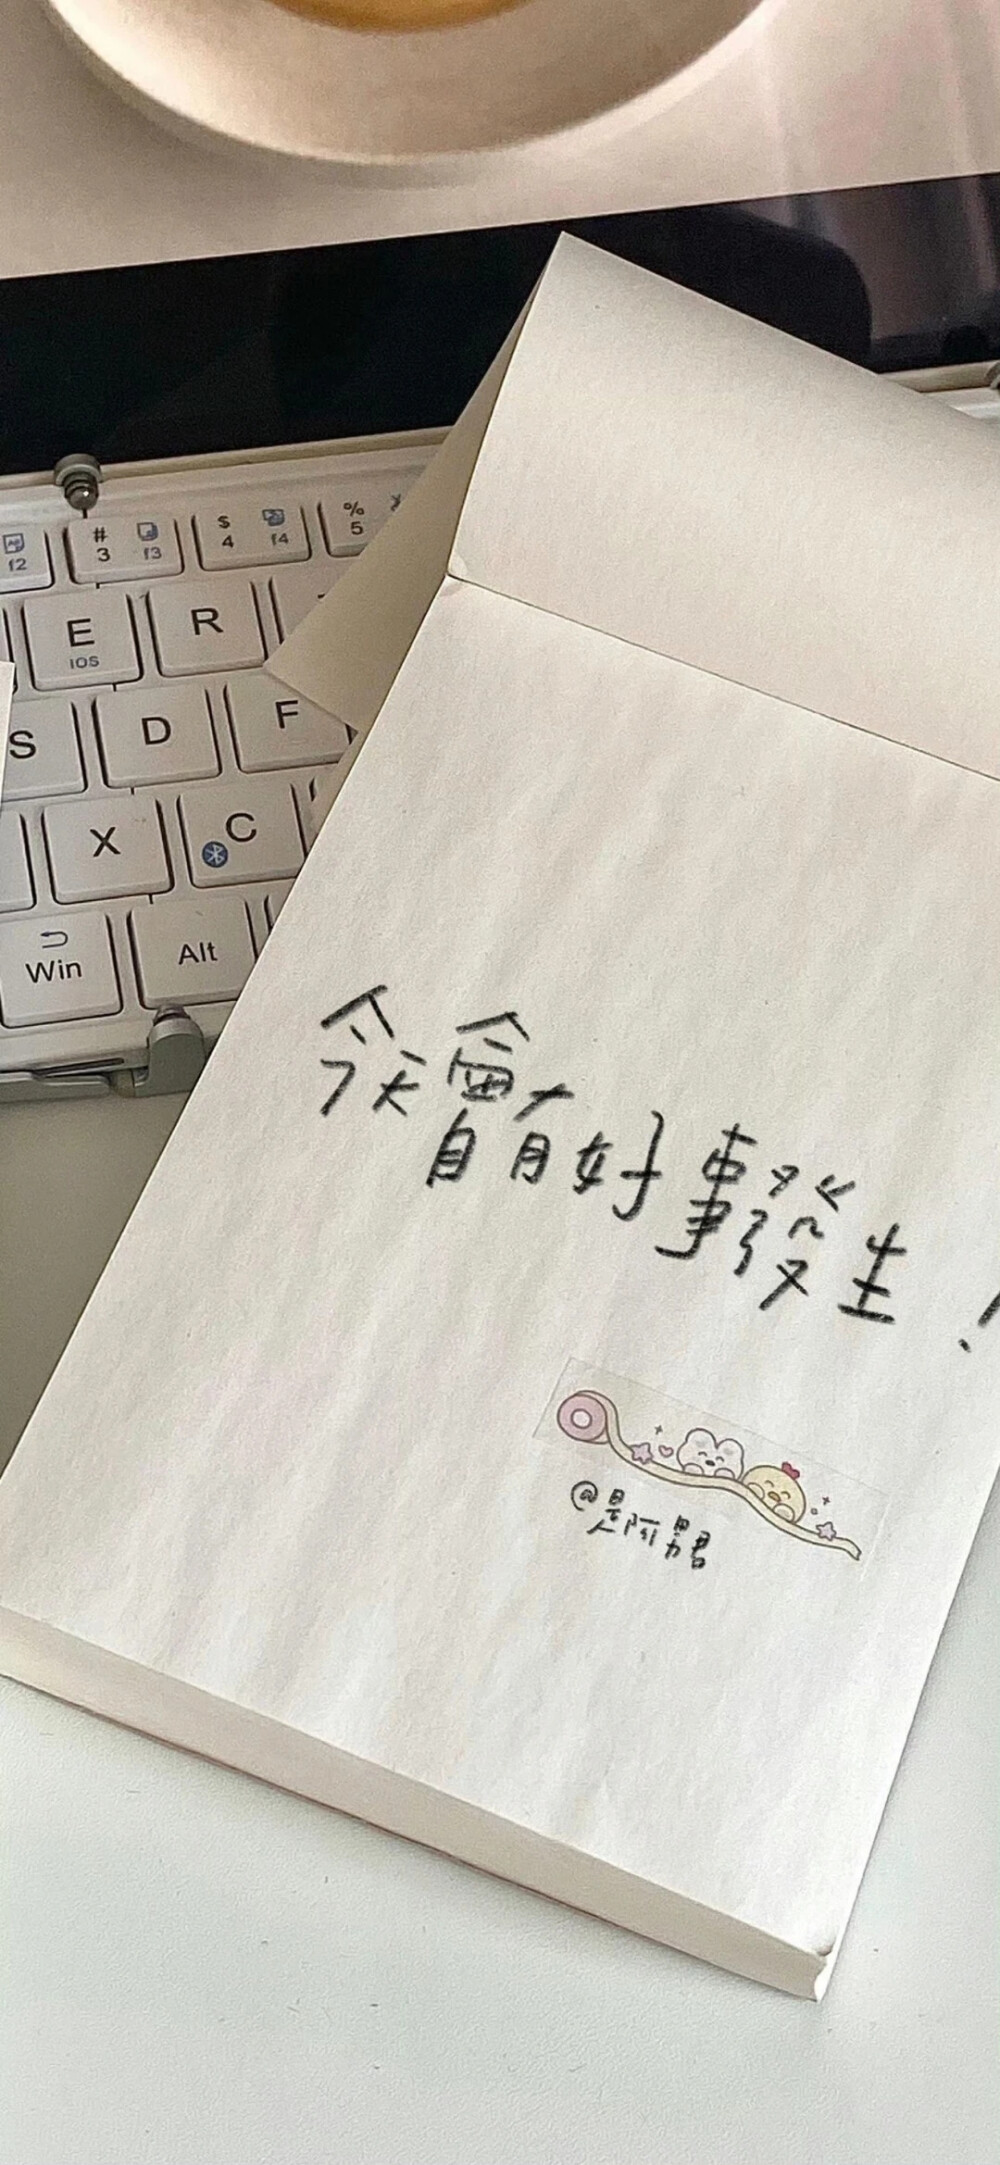 # 3 f3
$ 4 f4
% 5
f2
E IOS
R
S
D
F
X
C
Win
Alt
今天會有好事發生!
@是阿男君